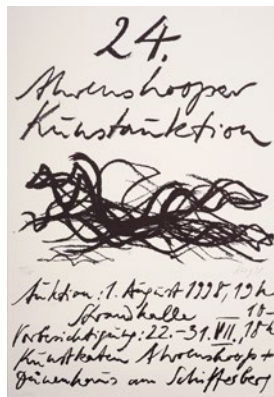 24.
Ahrenshooper
Kunstauktion
Auktion: 1. August 1998, 19h
Strandhalle 10-
Vorbesichtigung: 22.-31. VII. 18h
Kunstkaten Ahrenshoop+
Dünenhaus am Schifferberg